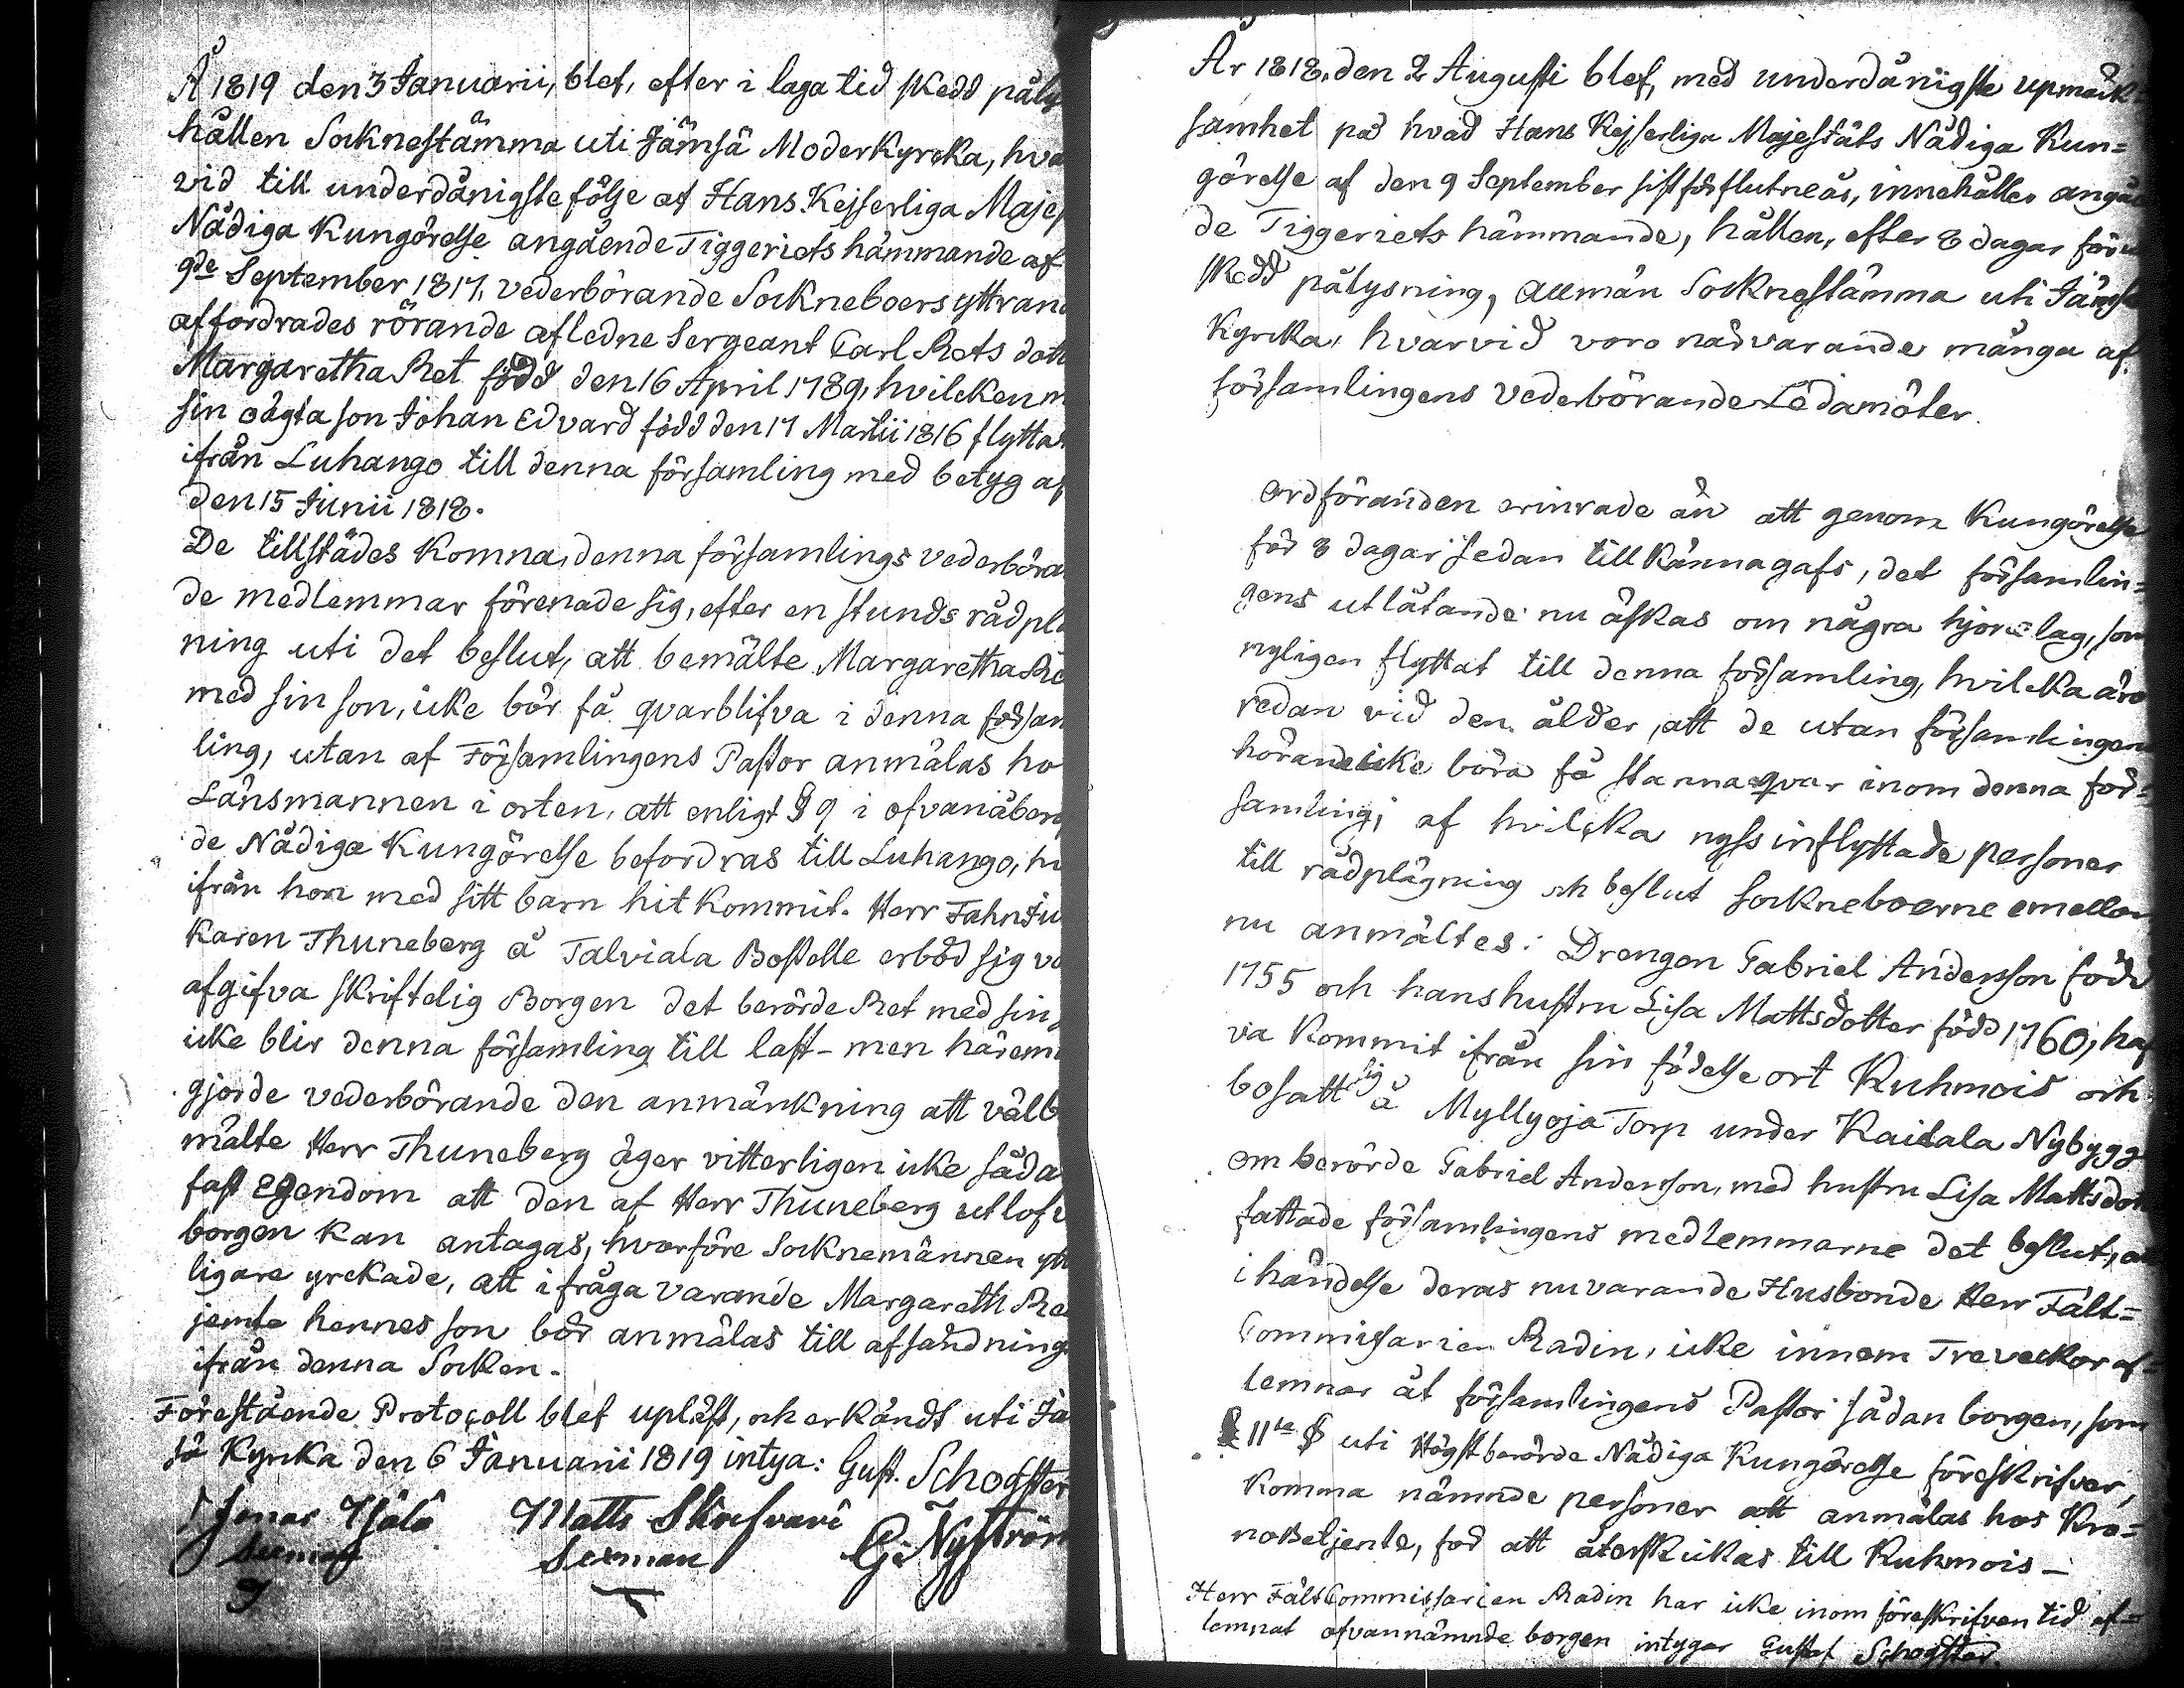 År 1819 den 3 Januarii, blef, efter i laga tid skedd påly
hållen Socknestämma uti Jämsä Moderkyrcka, hva
vid till underdånigste följe af Hans Kejserliga Majes
Nådiga Kungörelse angående Tiggeriets hämmande af
9de September 1817, vederbörande Sockneboers yttran
affordrades rörande afledne Sergeant Carl Rets dott
Margaretha Ret född den 16 April 1789, hvilcken m
sin oägta son Johan Edvard född den 17 Martii 1816 flyttat
ifrån Luhango till denna församling med betyg af
den 15 Junii 1818.
De tillstädes komna, denna församlings vederböra
de medlemmar förenade sig, efter en stunds rådplä
ning uti det beslut, att bemälte Margaretha Re
med sin son, icke bör få qvarblifva i denna försam
ling, utan af Församlingens Pastor anmälas ho
Länsmannen i orten, att enligt § 9 i ofvanåberop
de Nådiga Kungörelse befordras till Luhango, hv
ifrån hon med sitt barn hit kommit. Herr Fahnju
karen Thuneberg å Talviala Bostelle erböd sig v
afgifva skriftelig Borgen det berörde Ret med sin
icke blir denna församling till last - men härem
gjorde vederbörande den anmärkning att välb
mälte Herr Thuneberg äger vitterligen icke såda
fast egendom att den af Herr Thuneberg utlofv
borgen kan antagas, hvarföre Socknemännen ytt
ligare yrckade, att ifråga varande Margareth Re
jemte hennes son bör anmälas till afsändning
ifrån denna Socken.
Förestående Protocoll blef upläst, och erkändt uti Jä
sä Kyrka den 6 Januarii 1819 intya: Gust. Schogster
Jonas Matts G: Nyström
Sexman Sexman
År 1818, den 2 Augusti blef, med underdånigste upmärk=
samhet på hvad Hans Kejserliga Majestäts Nådiga Kun=
görelse af den 9 September sistförflutne år, innehåller angåe
de Tiggeriets hämmande, hållen, efter 8 dagar förut
skedd pålysning, allmän Socknestämma uti Jämsä
Kyrcka, hvarvid voro närvarande många af
församlingens vederbörande Ledamöter.
Ordföranden erinrade än att genom Kungörelse
för 8 dagar sedan tillkännagafs, det församlin=
gens utlåtande nu äskas om några hjonelag, som
nyligen flyttat till denna församling, hvilcka äro
redan vid den ålder, att de utan församlingens
hörande icke böra få stanna qvar inom denna för=
samling; af hvilcka nyss inflyttade personer
till rådplägning och beslut sockneboerne emellan
nu anmältes: Drengen Gabriel Andersson född
1755 och hans hustru Lisa Mattsdotter född 1760, haf
va kommit ifrån sin födelse ort Kuhmois och
bosatt sig å Myllyoja Torp under Kaidala Nybygge
Om berörde Gabriel Andersson, med hustru Lisa Mattsdott
fattade församlingens medlemmarne det beslut, att
i händelse deras nuvarande Husbonde Herr Fält=
Commissarien Radin, icke innom Tre veckor af=
lemnar åt församlingens Pastor sådan borgen, som
11te § uti Högstberörde Nådiga Kungörelse föreskrifver,
komma nämnde personer att anmälas hos Kro=
nobetjente, för att återskickas till Kuhmois —
Herr FältCommissarien Radin har icke inom föreskrifven tid af=
lemnat ofvannämnde borgen intygar Gustaf Schogster.